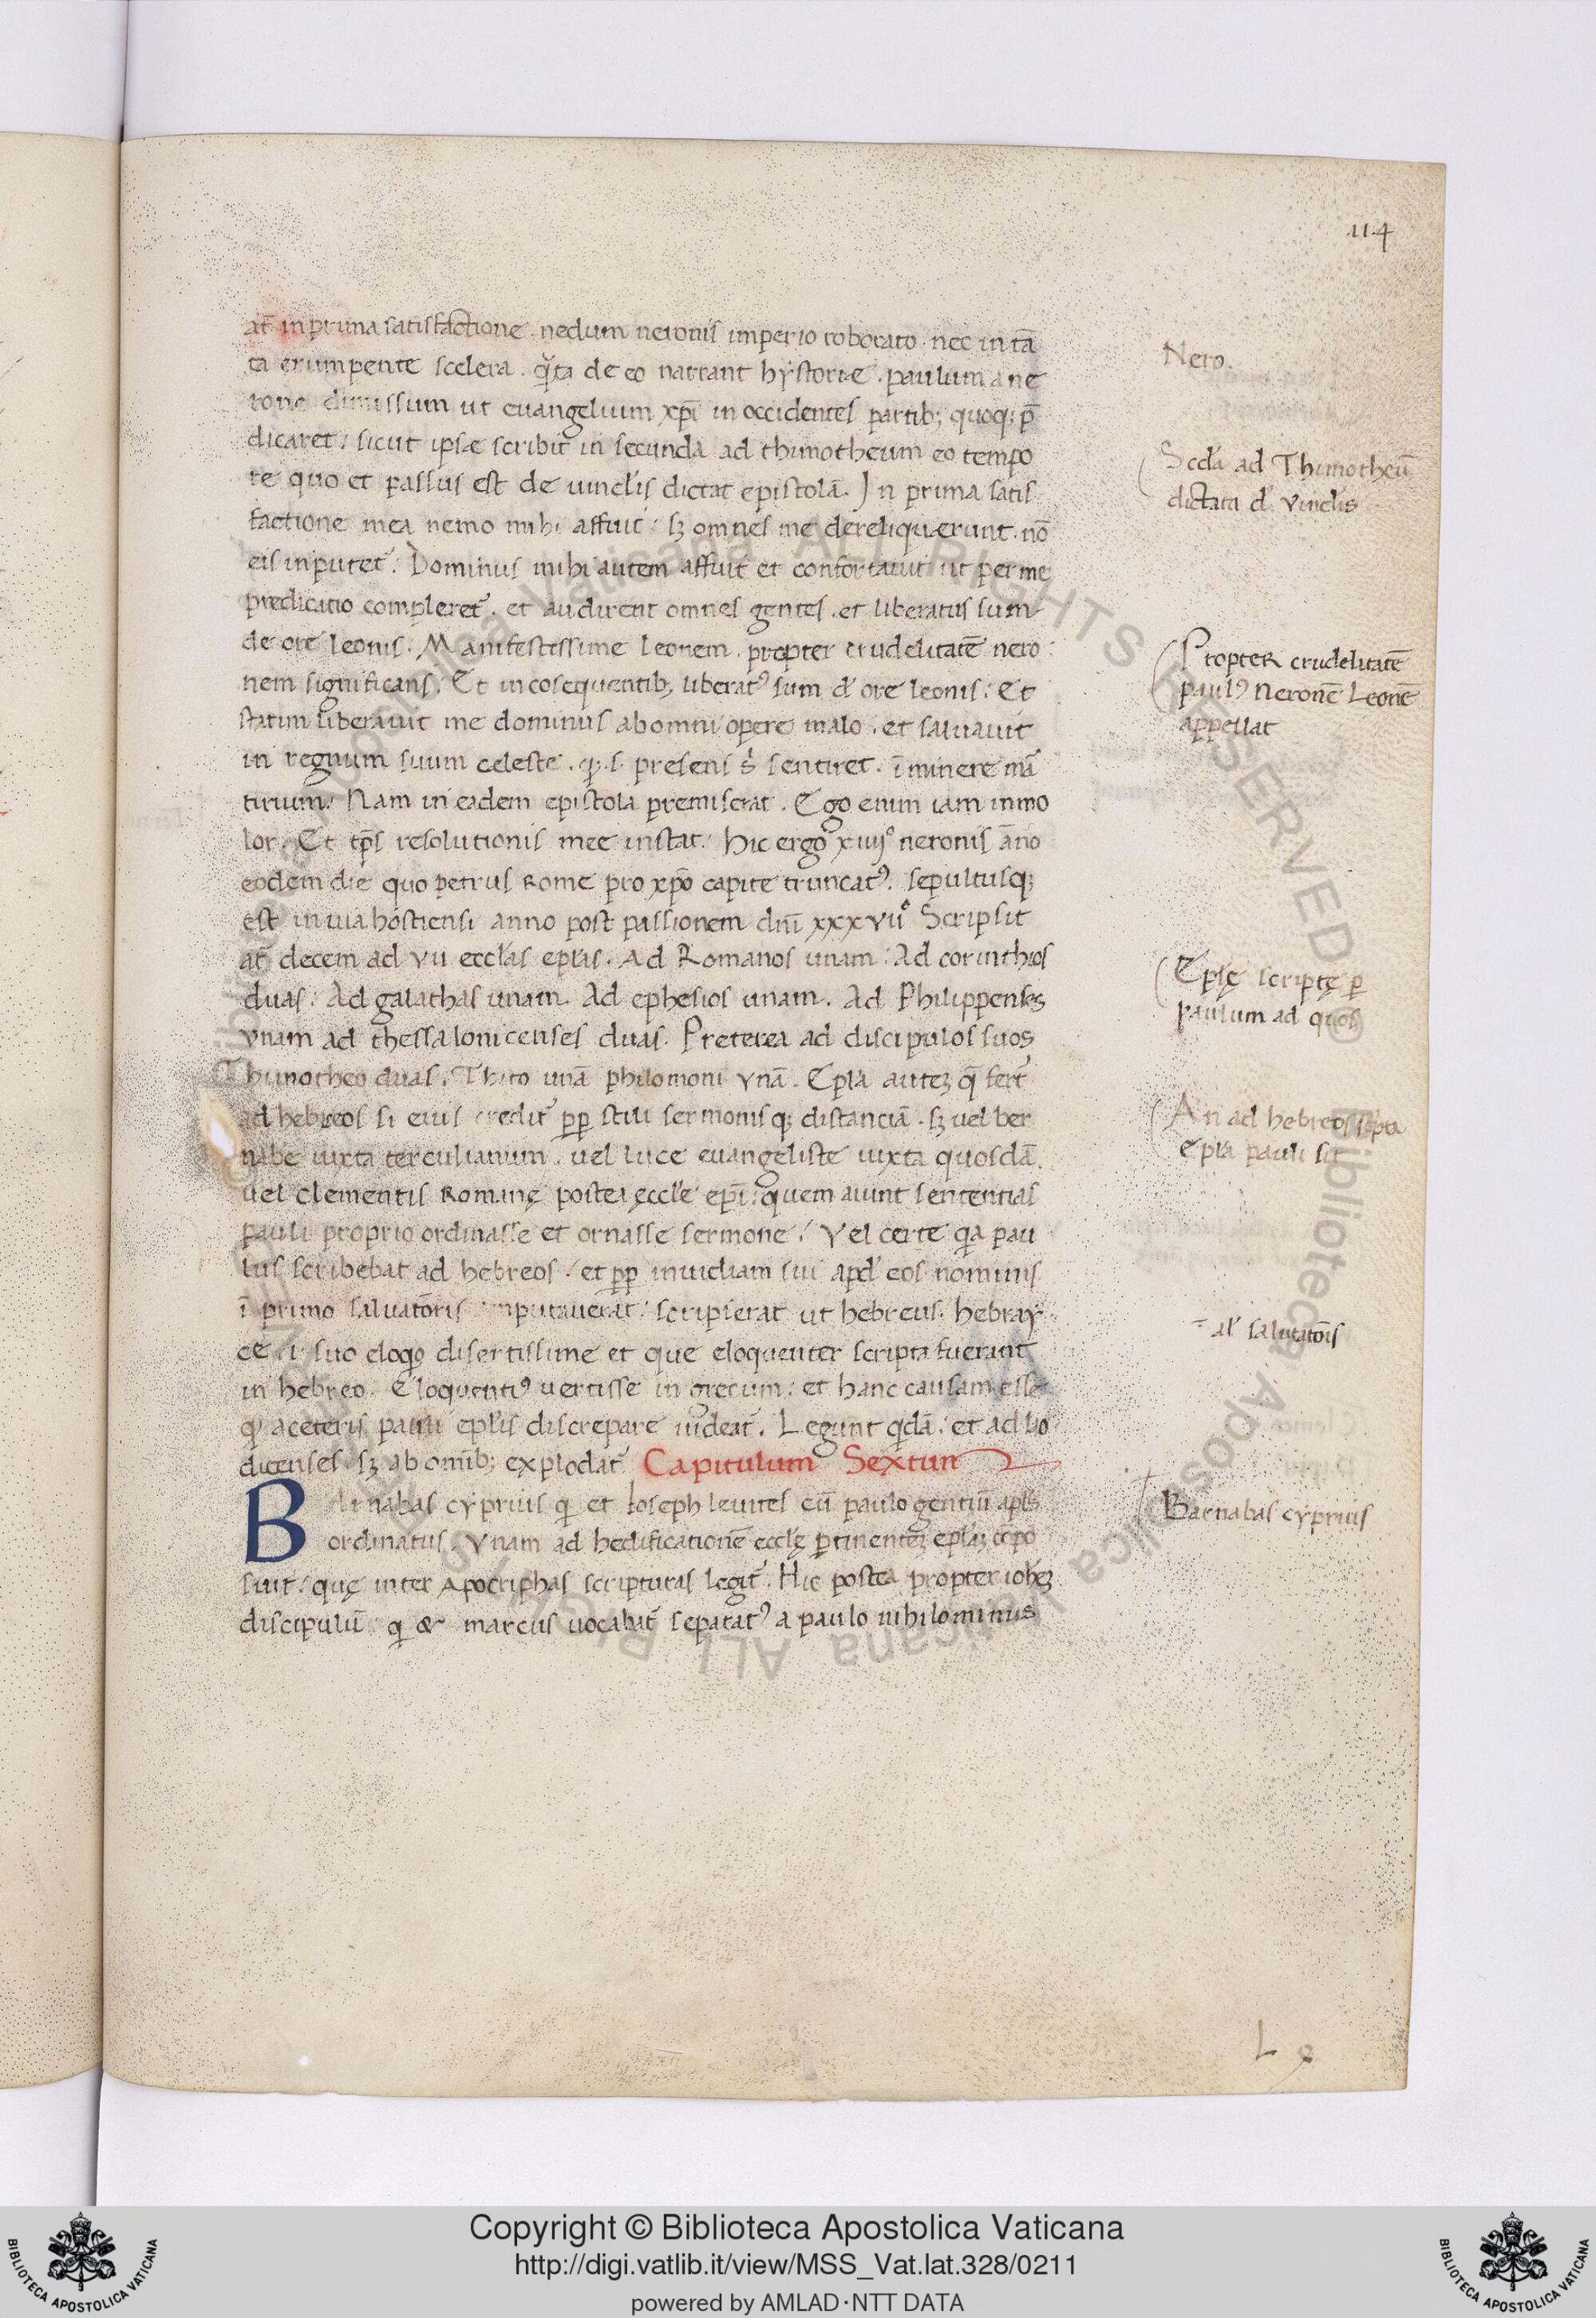 114
at̄ in prima satisfactione. nedum neronis imperio roborato. nec in tā
ta erumpente scelera. q̄ta de eo narrant hystorie. paulum a ne
rone dimissum ut euangelium xp̄i in occidentes partib; quoq; p̄
dicaret: sicut ipse scribit in secunda ad thimotheum eo tempo
re quo et passus est de uinclis dictat epistolā. In prima satis
factione mea nemo mihi affuit: sꝫ omnes me dereliquerunt. nō
eis inputet᷑. Dominus mihi autem affuit et confortauit ut per me
predicatio compleret᷑. et audirent omnes gentes. et liberatus sum
de ore leonis. Manifestissime leonem. propter crudelitatē nero
nem significans. Et in cosequentib; liberatꝰ sum d̓ ore leonis: Et
statim liberauit me dominus ab omni opere malo. et saluauit
in regnum suum celeste. q. s. presens s̓ sentiret. īminere ma᷑
tirium. Nam in eadem epistola premiserat. Ego enim iam inmo
lor. Et tp̄s resolutionis mee instat. Hic ergo xiiijº neronis āno
eodem die quo petrus Rome pro xp̄o capite truncatꝰ. sepultusq;
est in uia hostiensi anno post passionem dn̄i xxxvııº Scripsit
at̄ decem ad vıı eccl̓as epl̓as. Ad Romanos unam: Ad corinthios
duas. Ad galathas unam. Ad ephesios unam. Ad Philippenses
vnam ad thessalonicenses duas. Preterea ad discipulos suos
Thimotheo duas. Thito unā philomoni vnā. Epl̓a auteꝫ q̄ fert᷑
ad hebreos si eius credit᷑ ꝓp stili sermonisq; distanciā. sꝫ uel ber
nabe iuxta terculianum. uel luce euangeliste iuxta quosdā.
uel clementis Romanę postea ęccl̓e ep̄i: quem aiunt sententias
pauli proprio ordinasse et ornasse sermone: Vel certe q̓a pau
lus scribebat ad hebreos. et ꝓp inuidiam sui apd̓ eos nominis
ī primo saluatōris imputauerat: scripserat ut hebreus. hebray
ce. i. suo eloqo disertissime et que eloquenter scripta fuerant
in hebreo. Eloquentiꝰ uertisse in grecum: et hanc causam esse
q̓ a ceteris pauli epl̓is discrepare uideat᷑. Legunt q̓dā: et ad lao
dicenses. sꝫ ab omīb; explodat᷑ Capitulum Sextun
B nabas cyprius q̓ et Ioseph leuites cū paulo gentiū apl̓s
ordinatus. Vnam ad hedificationē ecclę ꝑtinenteꝫ epl̓aꝫ cōpo
suit: quę inter Apocriphas scripturas legit᷑. Hic postea propter iohēꝫ
discipulū q̓ & marcus uocabat᷑ sepatatꝰ a paulo nihilominus
Nero.
Scd̓a ad Thimotheū
dictata d̓ vinclis
PropteR crudelitatē
paulꝰ Neronē Leonē
appellat
Epl̓ę scriptę ꝑ
paulum ad quos
An ad hebreos scpta
epl̓a pauli sit
al̓ salutatōis
Barnabas cyprius
Copyright © Biblioteca Apostolica Vaticana
http://digi.vatlib.it/view/MSS_Vat.lat.328/0211
powered by AMLAD·NTT DATA
BIBLIOTECA APOSTOLICA VATICANA
BIBLIOTECA APOSTOLICA VATICANA